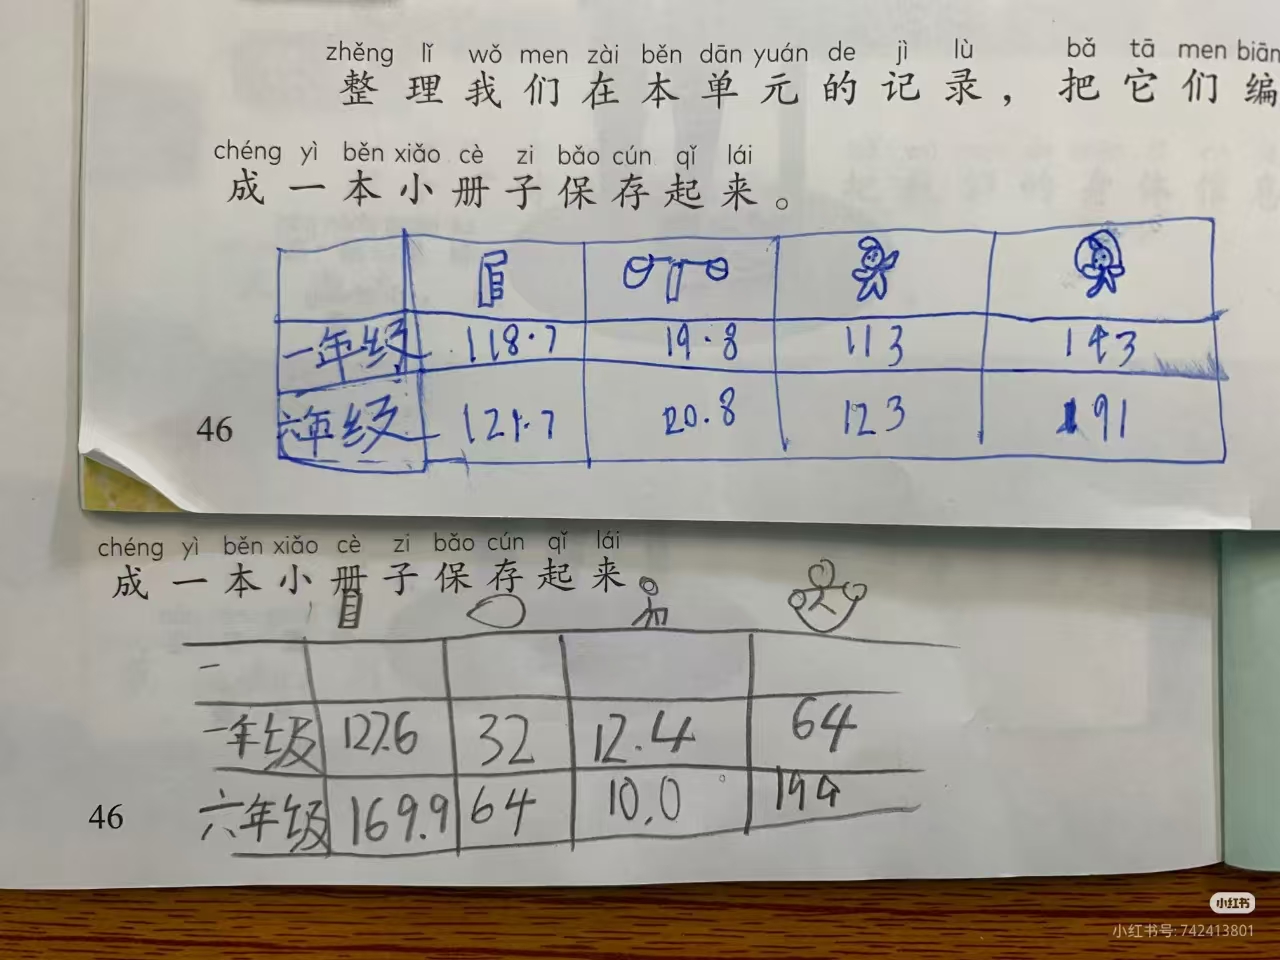 zhěng lǐ wǒ men zài běn dān yuán de jì lù bǎ tā men biān
整理我们在本单元的记录，把它们编
chéng yì běn xiǎo cè zi bǎo cún qǐ lái
成一本小册子保存起来。
一年级 118.7 19.8 113 143
六年级 121.7 20.8 123 191
46
chéng yì běn xiǎo cè zi bǎo cún qǐ lái
成一本小册子保存起来
一
一年级 127.6 32 12.4 64
六年级 169.9 64 10.0 194
46
小红书
小红书号: 742413801